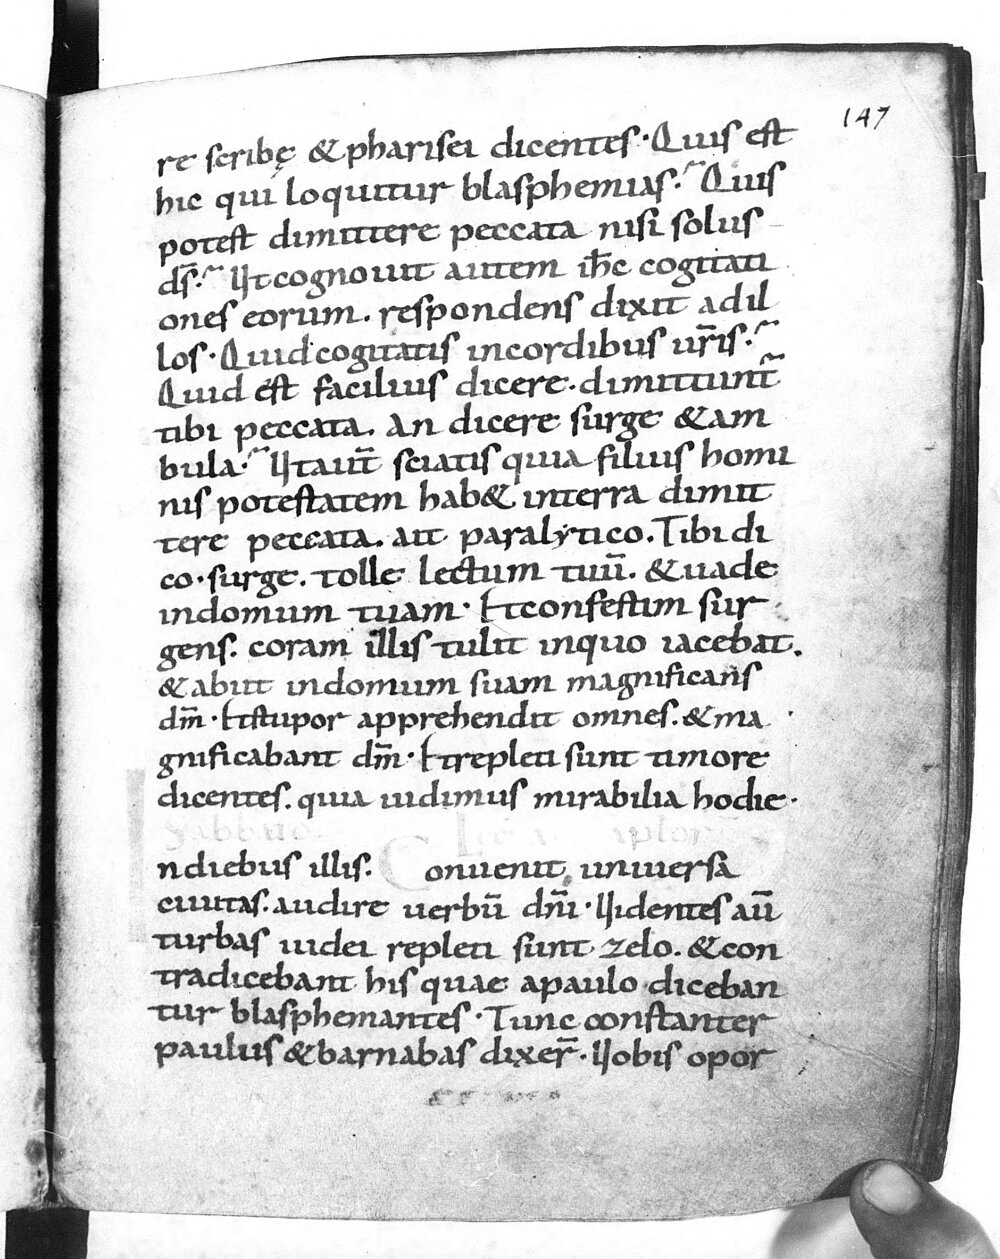 147
re scribę & pharisei dicentes· Quis est
hic qui loquitur blasphemias· Quis
potest dimittere peccata nisi solus
ds̄· Ut cognouit autem ih̄c cogitati
ones eorum. respondens dixit adil
los· Quid cogitatis incordibus ur̄is·
Quid est facilius dicere· dimittunt̄
tibi peccata. An dicere surge & am
bula· Ut aut̄ sciatis quia filius homi
nis potestatem hab& interra dimit
tere peccata. ait paralytico. Tibi di
co· surge. tolle lectum tuū. & uade
indomum tuam· Et confestim sur
gens. coram illis tulit inquo iacebat.
& abiit indomum suam magnificans
dm̄· Et stupor apprehendit omnes. & ma
gnificabant dm̄· Et repleti sunt timore
dicentes. quia uidimus mirabilia hodie·
ndiebus illis. onuenit uniuersa
ciuitas. audire uerbū dn̄i· Uidentes aū
turbas iudei repleti sunt zelo. & con
tradicebant his quae apaulo diceban
tur blasphemantes· Tunc constanter
paulus & barnabas dixer̄· Uobis opor